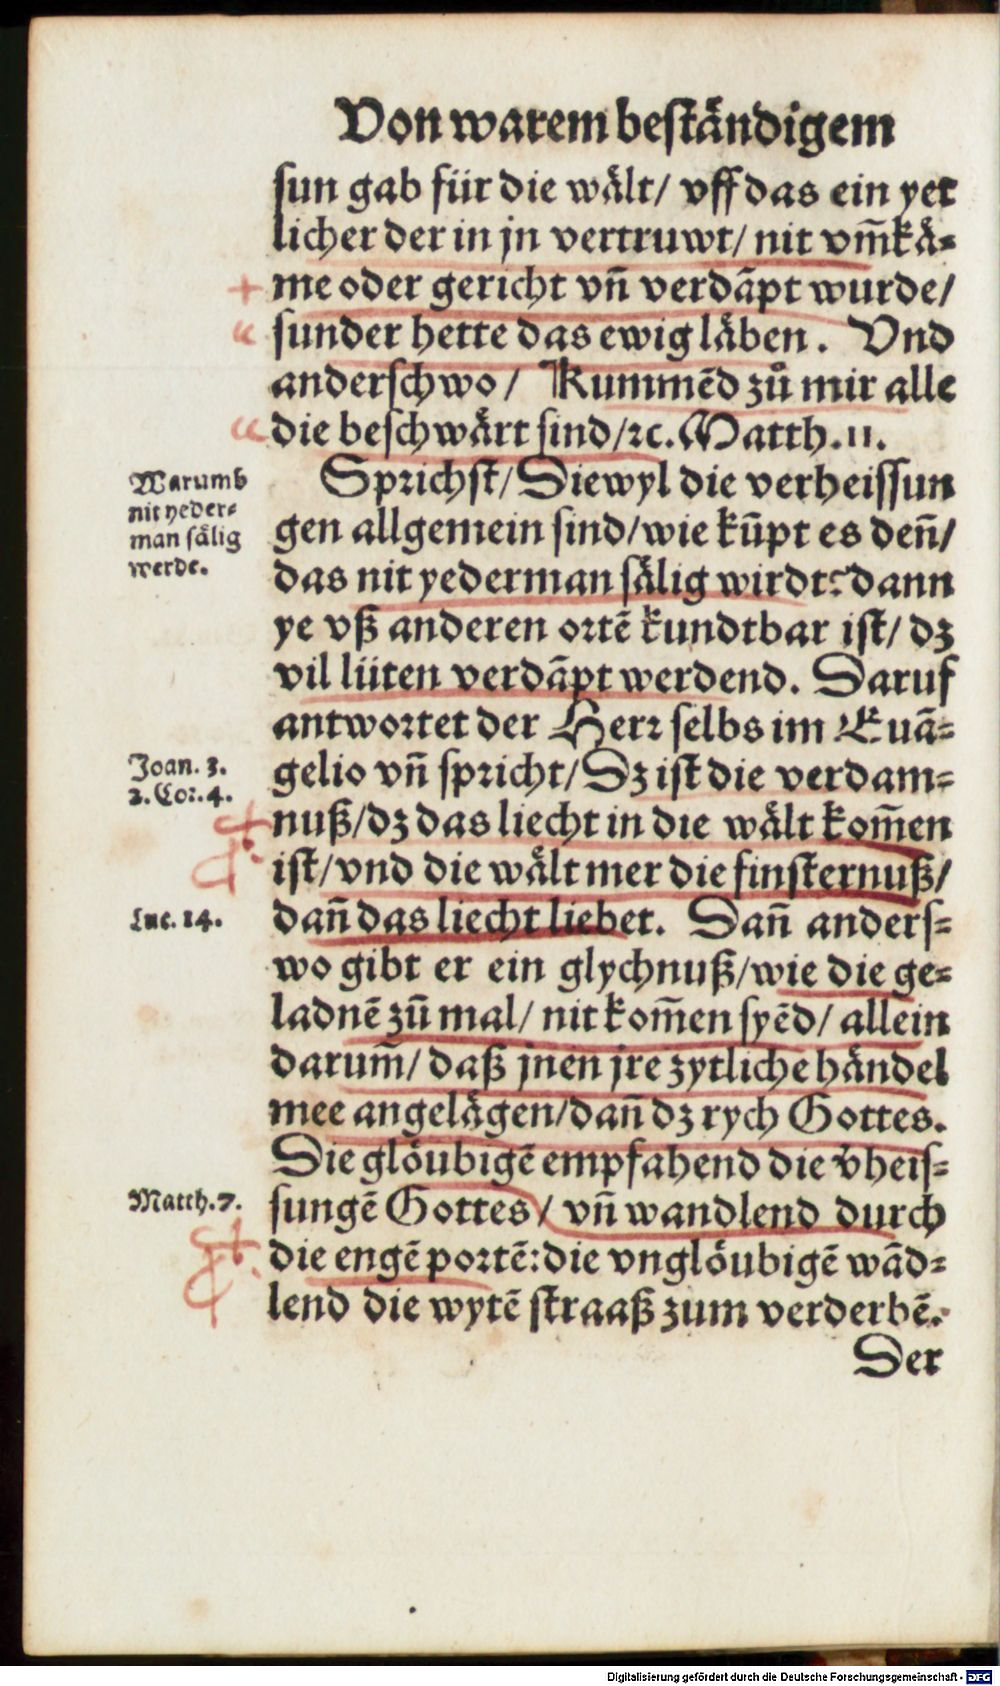 Von warem beständigem
sun gab für die wält/ vff das ein yet
licher der in jn vertruwt/ nit vm̃kä⸗
me oder gericht vñ verdãpt wurde/
sunder hette das ewig läben. Vnd
anderschwo/ Kummẽd zů mir alle
die beschwärt sind/ ꝛc. Matth. 11.
Warumb
nit yeder⸗
man sälig
werde.
Sprichst/ Diewyl die verheissun
gen allgemein sind/ wie kũpt es deñ/
das nit yederman sälig wirdt? dann
ye vß anderen ortẽ kundtbar ist/ dz
vil lüten verdãpt werdend. Daruf
antwortet der Herr selbs im Euã⸗
Joan. 3.
2. Cor. 4.
gelio vñ spricht/ Dz ist die verdam⸗
nuß/ dz das liecht in die wält kom̃en
ist/ vnd die wält mer die finsternuß/
Luc. 14.
dañ das liecht liebet. Dañ anders⸗
wo gibt er ein glychnuß/ wie die ge⸗
ladnẽ zũ mal/ nit kom̃en syẽd/ allein
darum̃/ daß jnen jre zytliche händel
mee angelägen/ dañ dz rych Gottes.
Die glöubigẽ empfahend die v̈heis⸗
Matth. 7.
sungẽ Gottes/ vñ wandlend durch
die engẽ portẽ: die vnglöubigẽ wãd⸗
lend die wytẽ straaß zum verderbẽ.
Der
Digitalisierung gefördert durch die Deutsche Forschungsgemeinschaft - DFG